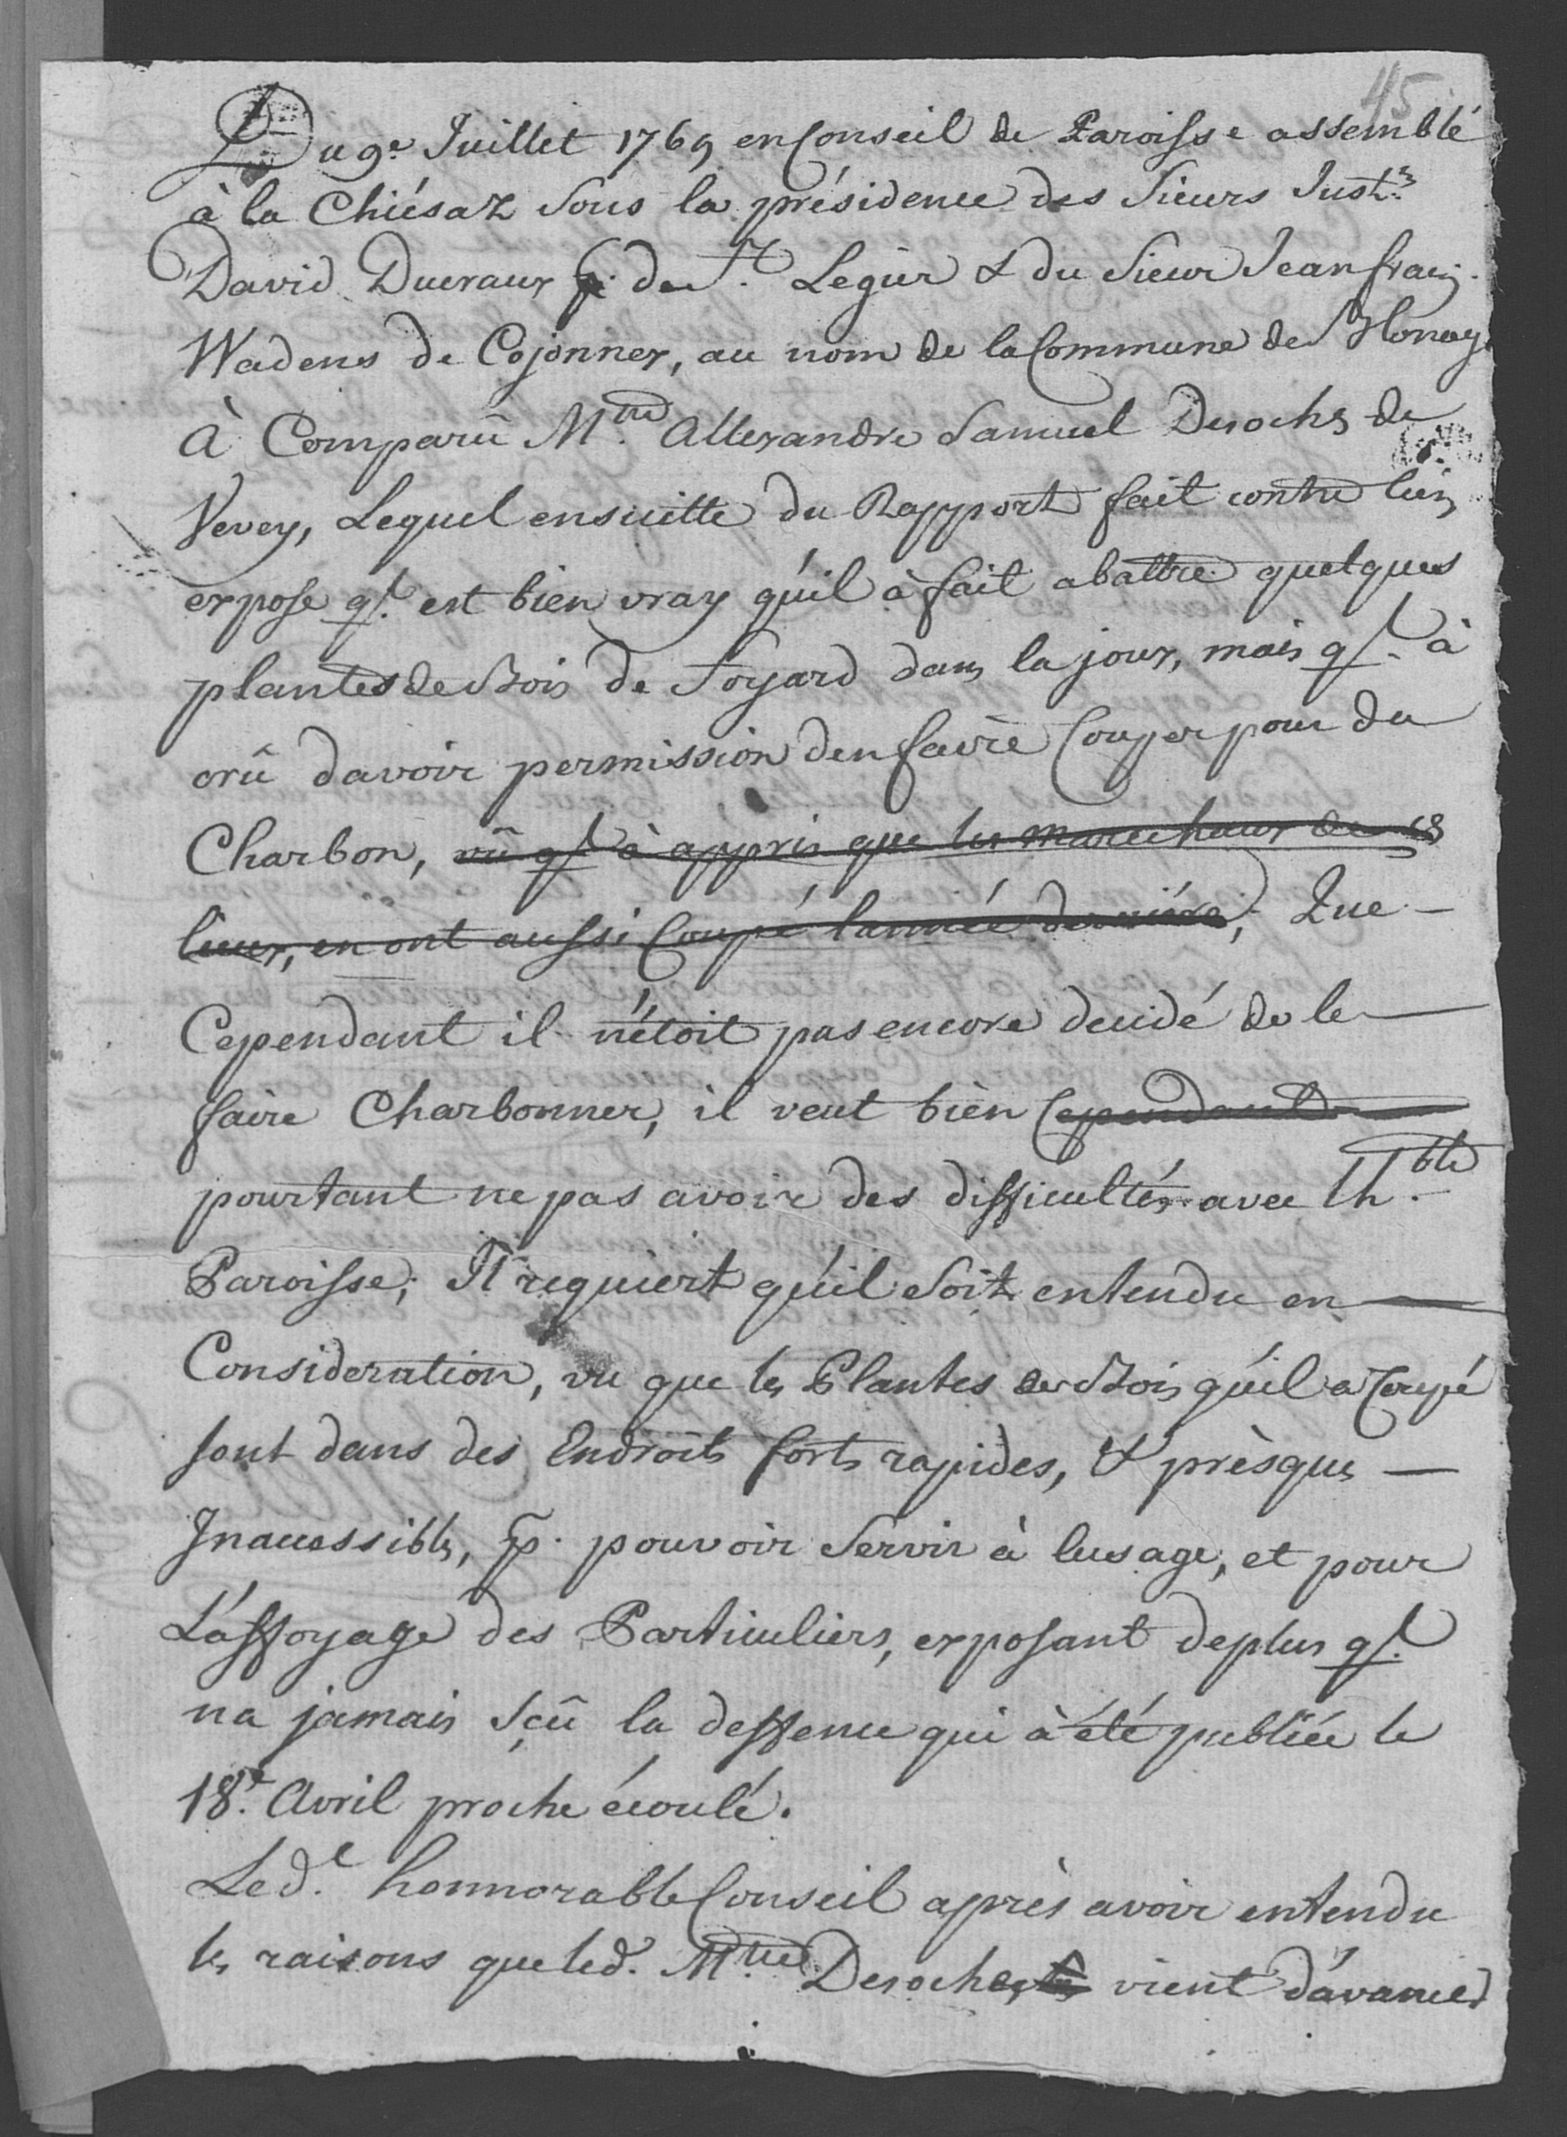 45
Du 9.e Juillet 1769 en Conseil de Paroisse assemblé
à la Chiésaz sous la présidence des Sieurs Just.rs
David Ducraux p. de St. Legier & du Sieur Jean franç.
Wadens de Cojonnex, au nom de la Commune de Blonay
à Comparû M.tre Allexandre Samuel Desochs de
Vevey, Lequel ensuitte du Rapport fait contre luy
expose ql. est bien vray qu'il à fait abattre quelques
plantes de Bois de Foyard dans la joux, mais ql. à
crû davoir permission den faire Couper pour du
Charbon, vû ql à appris que les marechaux de ces
lieux, en ont aussi Coupé l'année derniére; Que
Cependant il n'étoit pas encore decidé de le
faire Charbonner, il veut bien Cependant
pourtant ne pas avoir des difficultés avec lh.ble
Paroisse; Il requiert qu'il soit entendu en
Consideration, vu que les Plantes de Bois qu'il a Coupé
sont dans des Endroits forts rapides, & prèsque
Inaccessibles, p. pouvoir servir à lusage, et pour
L'affoyage des Particuliers, exposant deplus ql.
na jamais sçû la deffence qui à été publiée le
18.e Avril proche écoulé.
Led.t honnorable Conseil après avoir entendu
les raisons que led. M.tre Desoches vient d'avancer